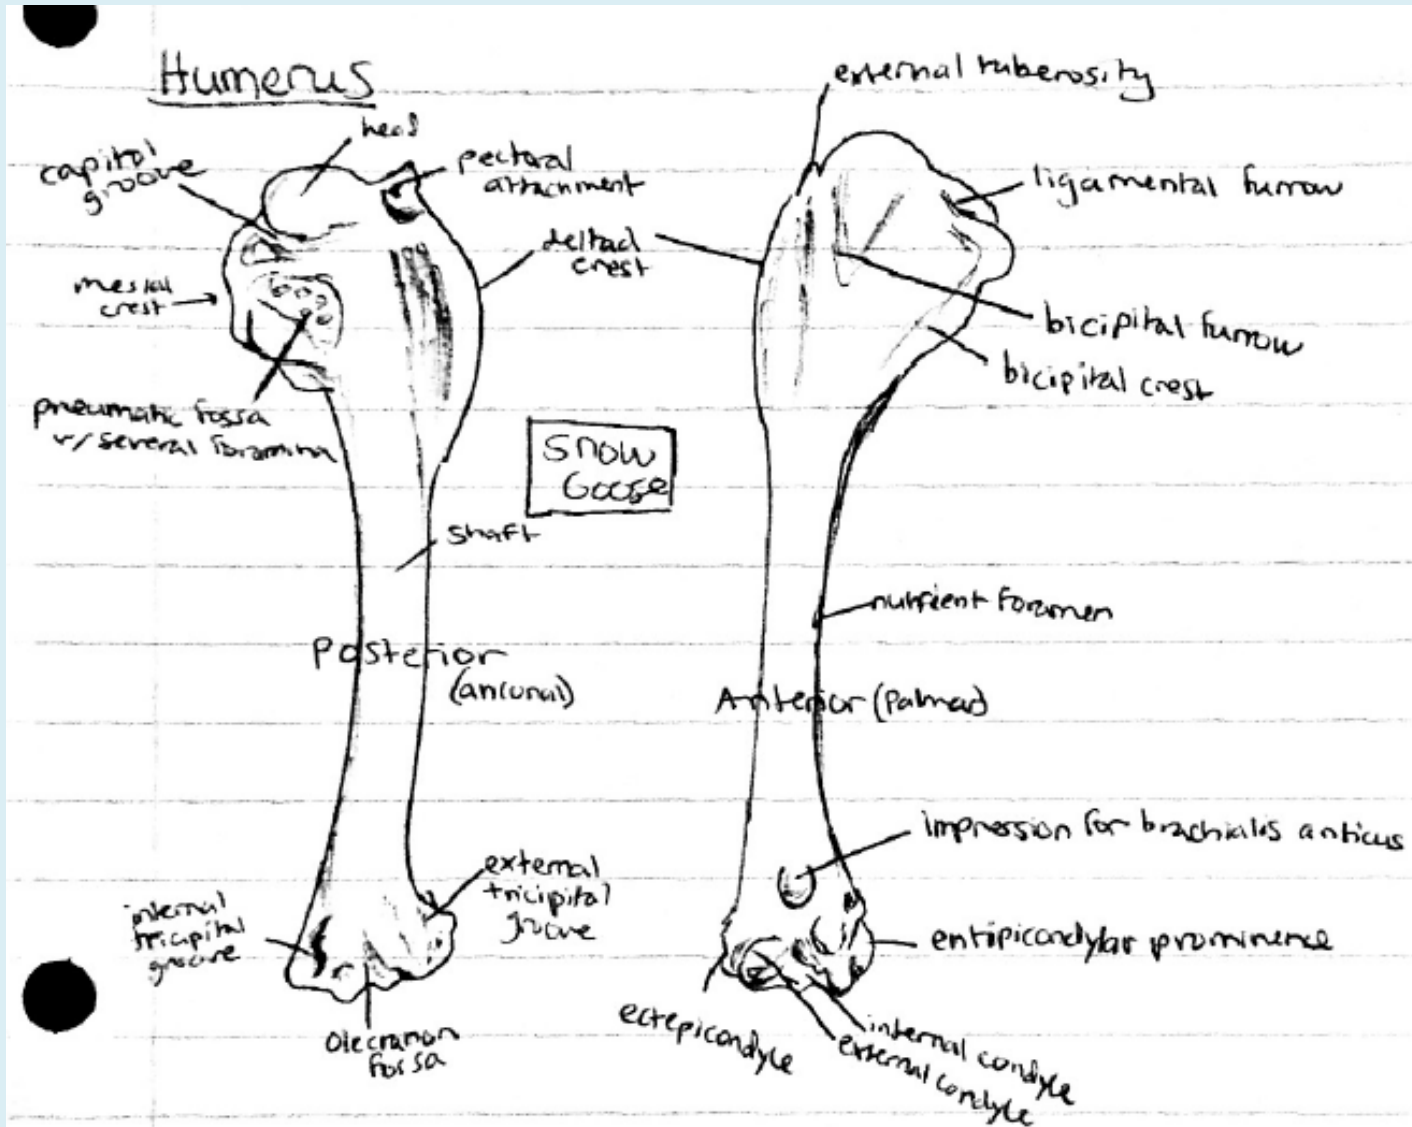 Humerus
head
capital
groove
pectoral
attachment
deltoid
crest
mesial
crest
pneumatic fossa
w/ several foramina
shaft
Posterior
(anconal)
internal
tricipital
groove
external
tricipital
groove
Olecranon
fossa
Snow
Goose
external tuberosity
ligamental furrow
bicipital furrow
bicipital crest
nutrient foramen
Anterior (Palmar)
impression for brachialis anticus
entipicondylar prominence
ectepicondyle
internal condyle
external condyle